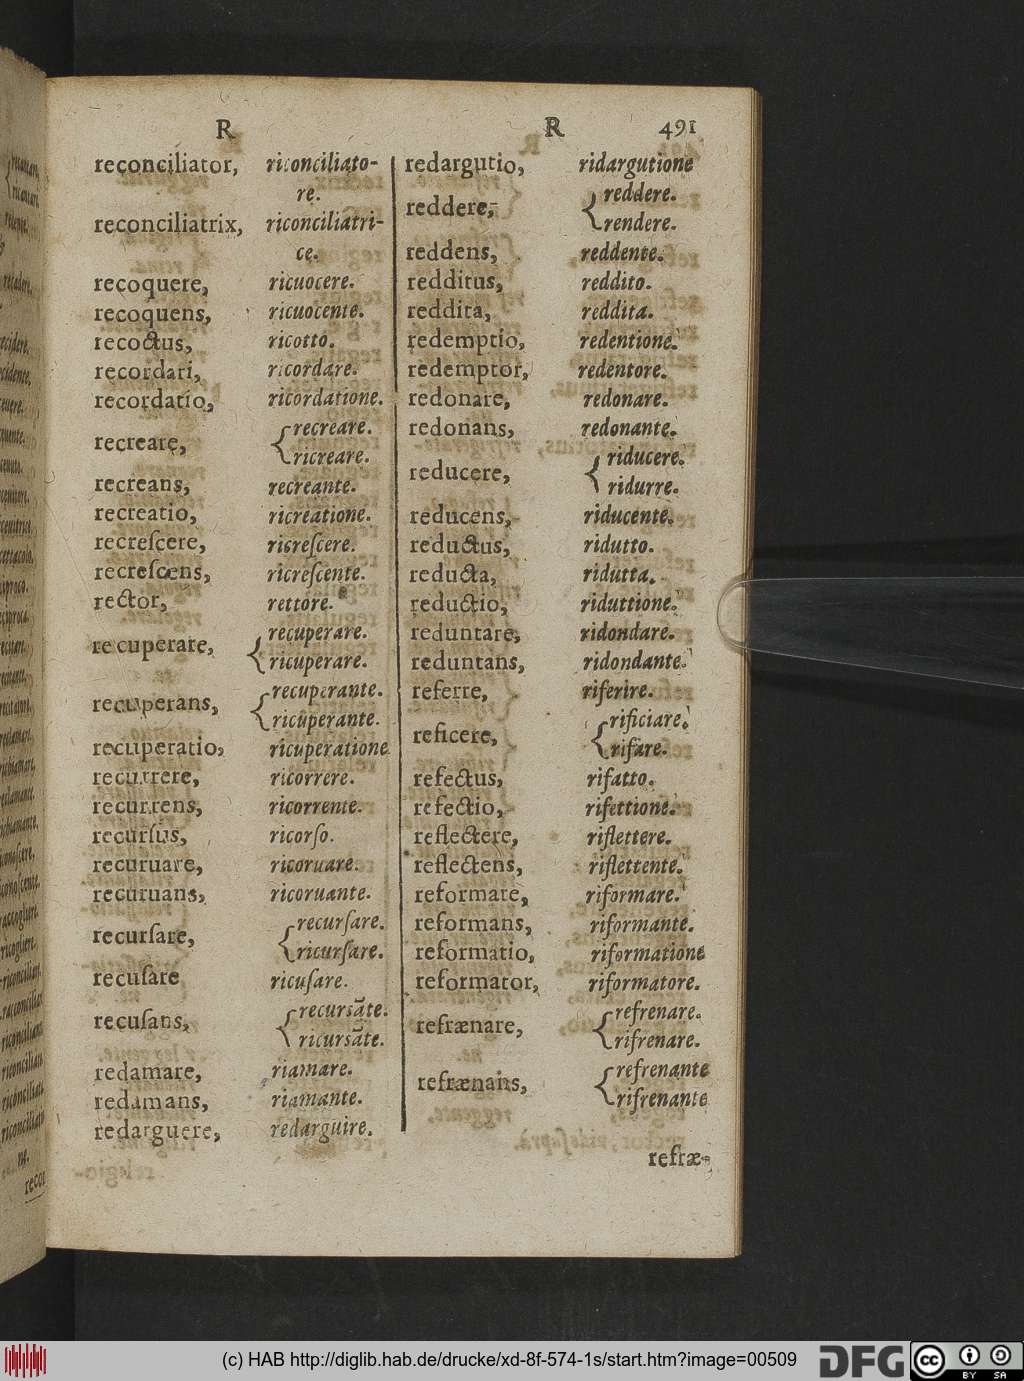 R R 491
reconciliator, riconciliato-
re.
reconciliatrix, riconciliatri-
ce.
recoquere, ricuocere.
recoquens, ricuocente.
recoctus, ricotto.
recordari, ricordare.
recordatio, ricordatione.
recreare, { recreare.
ricreare.
recreans, recreante.
recreatio, ricreatione.
recreſcere, ricreſcere.
recreſcens, ricreſcente.
rector, rettore.
recuperare, { recuperare.
ricuperare.
recuperans, { recuperante.
ricuperante.
recuperatio, ricuperatione
recurrere, ricorrere.
recurrens, ricorrente.
recurſus, ricorſo.
recuruare, ricoruare.
recuruans, ricoruante.
recurſare, { recurſare.
ricurſare.
recuſare ricuſare.
recuſans, { recurſāte.
ricurſāte.
redamare, riamare.
redamans, riamante.
redarguere, redarguire.
redargutio, ridargutione
reddere, { reddere.
rendere.
reddens, reddente.
redditus, reddito.
reddita, reddita.
redemptio, redentione.
redemptor, redentore.
redonare, redonare.
redonans, redonante.
reducere, { riducere.
ridurre.
reducens, riducente.
reductus, ridutto.
reducta, ridutta.
reductio, riduttione.
reduntare, ridondare.
reduntans, ridondante.
referre, riferire.
reficere, { rificiare.
rifare.
refectus, rifatto.
refectio, rifettione.
reflectere, riflettere.
reflectens, riflettente.
reformare, riformare.
reformans, riformante.
reformatio, riformatione
reformator, riformatore.
refrænare, { refrenare.
rifrenare.
refrænans, { refrenante
rifrenante
refræ-
(c) HAB http://diglib.hab.de/drucke/xd-8f-574-1s/start.htm?image=00509 DFG cc BY SA